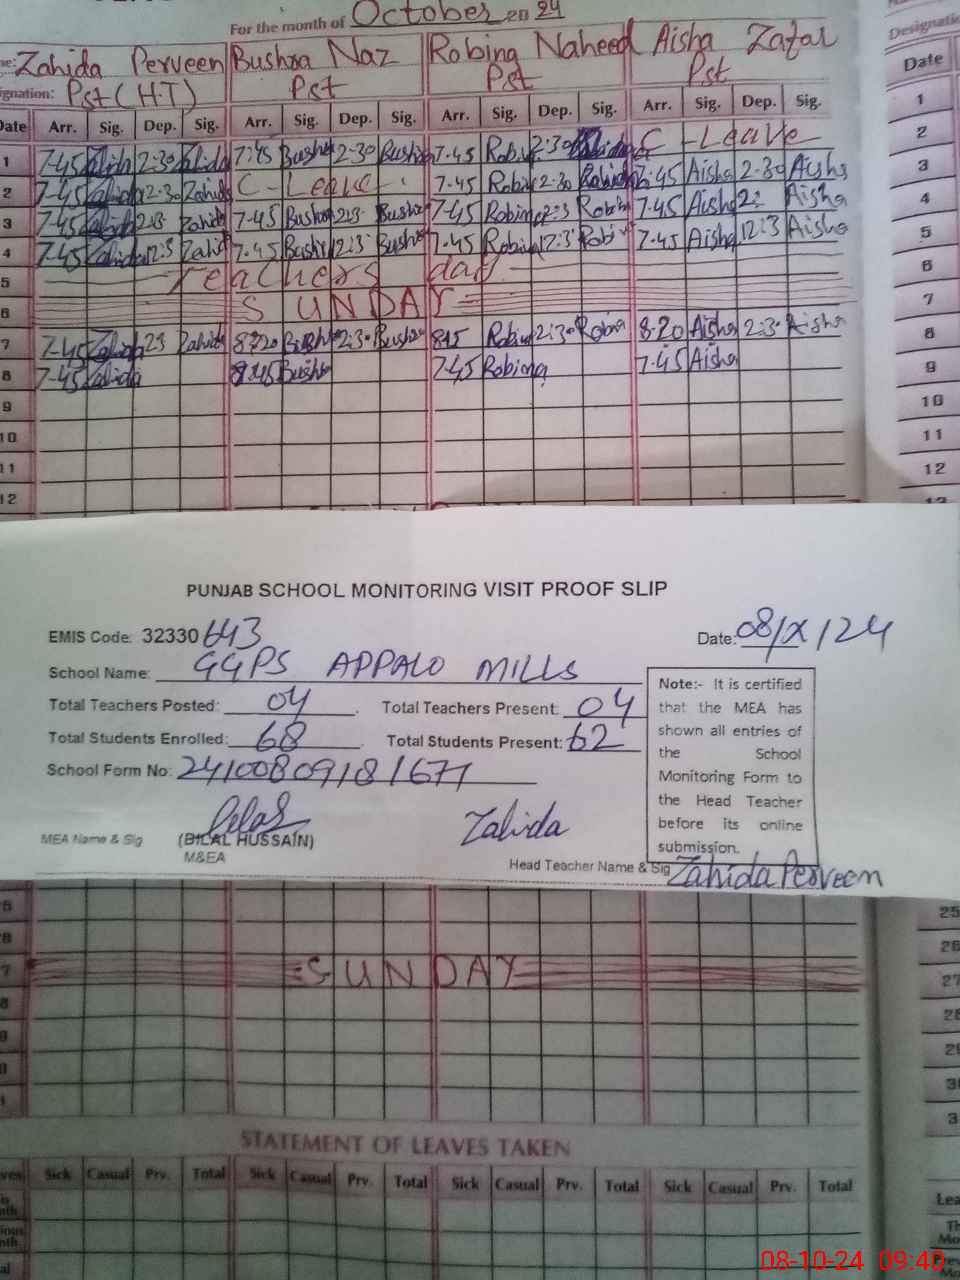 For the month of October 2024
Zahida Perveen Bushra Naz Robina Naheed Aisha Zafar
Designation: Pst (H.T) Pst Pst Pst
Date Arr. Sig. Dep. Sig. Arr. Sig. Dep. Sig. Arr. Sig. Dep. Sig. Arr. Sig. Dep. Sig.
1 7-45 Zahida 2:30 Zahida 7:45 Bushra 2-30 Bushra 7-45 Robina 2:30 C-Leave
2 7-45 Zahida 2:30 Zahida C-Leave 7.45 Robina 2:30 Robina 7:45 Aisha 2-30 Aisha
3 7-45 Zahida Zahida 7-45 Bushra Bushra 7-45 Robina 12:3 Robina 7-45 Aisha Aisha
4 7-45 Zahida 12:3 Zahida 7.45 Bushra 12:3 Bushra 7.45 Robina 12:3 Robina 7-45 Aisha 12:3 Aisha
5 Teachers day
6 SUNDAY
7 7-45 Zahida Zahida 8:20 Bushra 2:30 Bushra 8:15 Robina 2:30 Robina 8:20 Aisha 2:30 Aisha
8 7-45 Zahida Bushra 7-45 Robina 7-45 Aisha
9
10
11
12
Date
1
2
3
4
5
6
7
8
9
10
11
12
PUNJAB SCHOOL MONITORING VISIT PROOF SLIP
EMIS Code: 32330643 Date: 08/X/24
School Name: GGPS APPALO MILLS
Total Teachers Posted: 04 Total Teachers Present: 04
Total Students Enrolled: 68 Total Students Present: 62
School Form No: 24100809181671
Note:- It is certified
that the MEA has
shown all entries of
the School
Monitoring Form to
the Head Teacher
before its online
submission.
Zahida
MEA Name & Sig (BILAL HUSSAIN)
M&EA
Head Teacher Name & Sig Zahida Perveen
SUNDAY
25
26
27
28
29
30
STATEMENT OF LEAVES TAKEN
Sick Casual Prv. Total Sick Casual Prv. Total Sick Casual Prv. Total Sick Casual Prv. Total
08-10-24 09:40